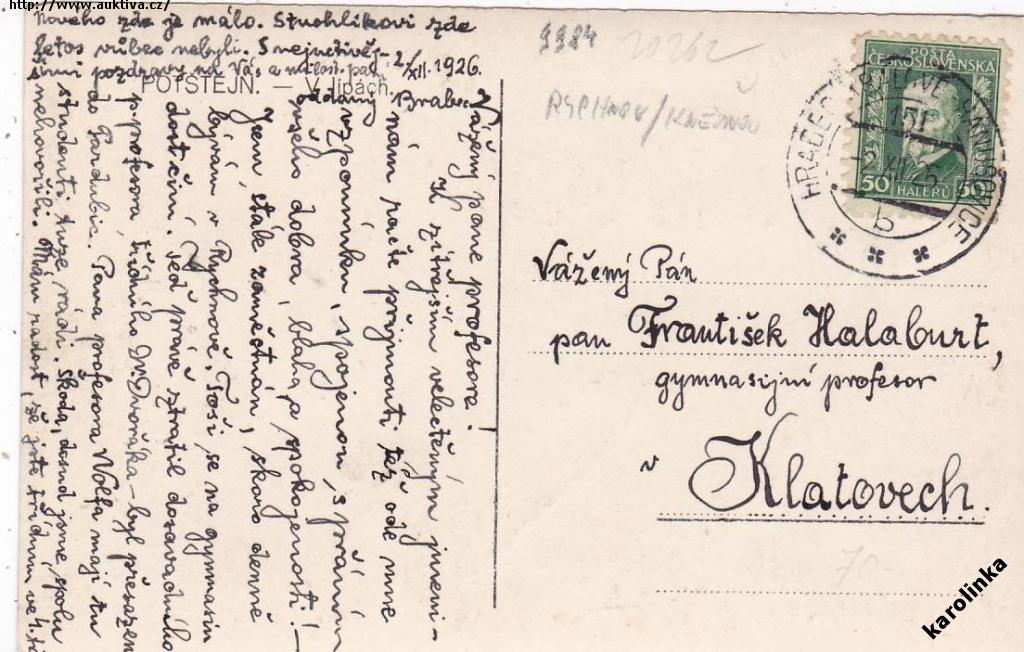 http://www.auktiva.cz/
Vážený pane profesore!
K zítřejším velectěným jmeni-
nám račte přijmouti též ode mne
vzpomínku, spojenou s přáním
všeho dobra, blaha a spokojenosti! –
Jsem stále zaměstnán, skoro denně
bývám v Rychnově. Toši se na gymnasiu
dosti činí. Teď právě ztratil dosavadního
p. profesora třídního Dr Dvořáka – byl přesazen
do Pardubic. Pana profesora Wolfa mají tu
studenti tuze rádi. Škoda, dosud jsme spolu
nehovořili. Mám radost, že jste třídním ve 4. tř.
Nového zde je málo. Stuchlíkovi zde
letos vůbec nebyli. S nejuctivěj-
šími pozdravy na Vás a milost. paní
oddaný Brabec
2/XII. 1926.
POTŠTEJN. — V lipách.
9984
20262
RYCHNOV/KNĚŽNOU
POŠTA
ČESKOSLOVENSKÁ
50 HALÉŘŮ 50
HRADEC
b
Vážený Pán
pan František Halaburt,
gymnasijní profesor
v Klatovech.
70-
karolinka